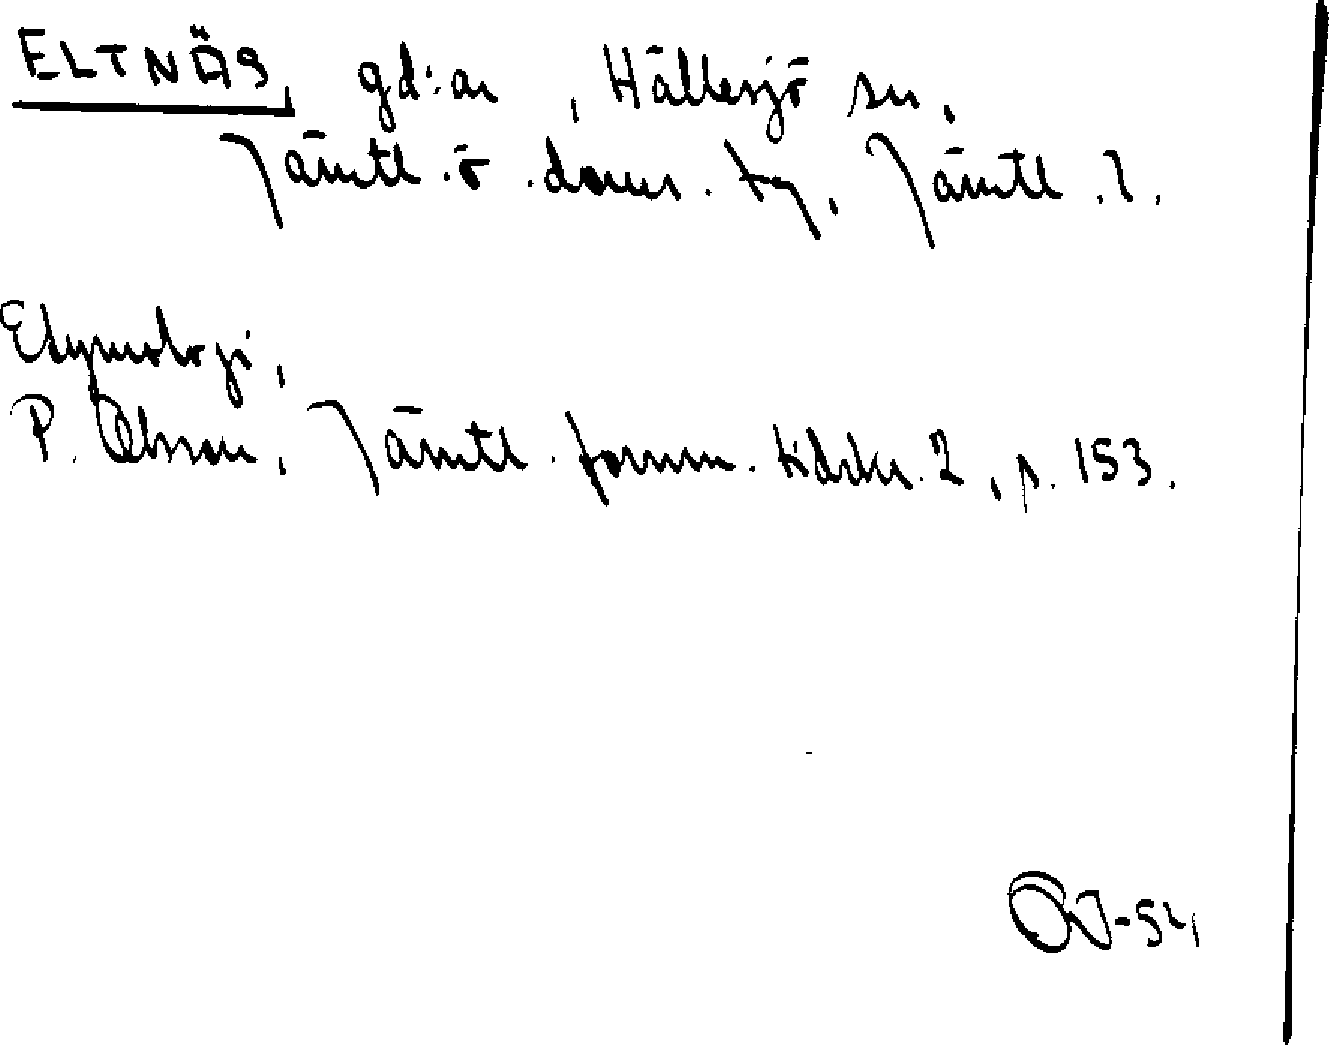 ELTNÄS, gd:ar, Hällesjö sn,
Jämtl. ö. doms. tg, Jämtl. l.
Etymologi,
P. Olsson, Jämtl. fornm. kdskr. 2, s. 153.